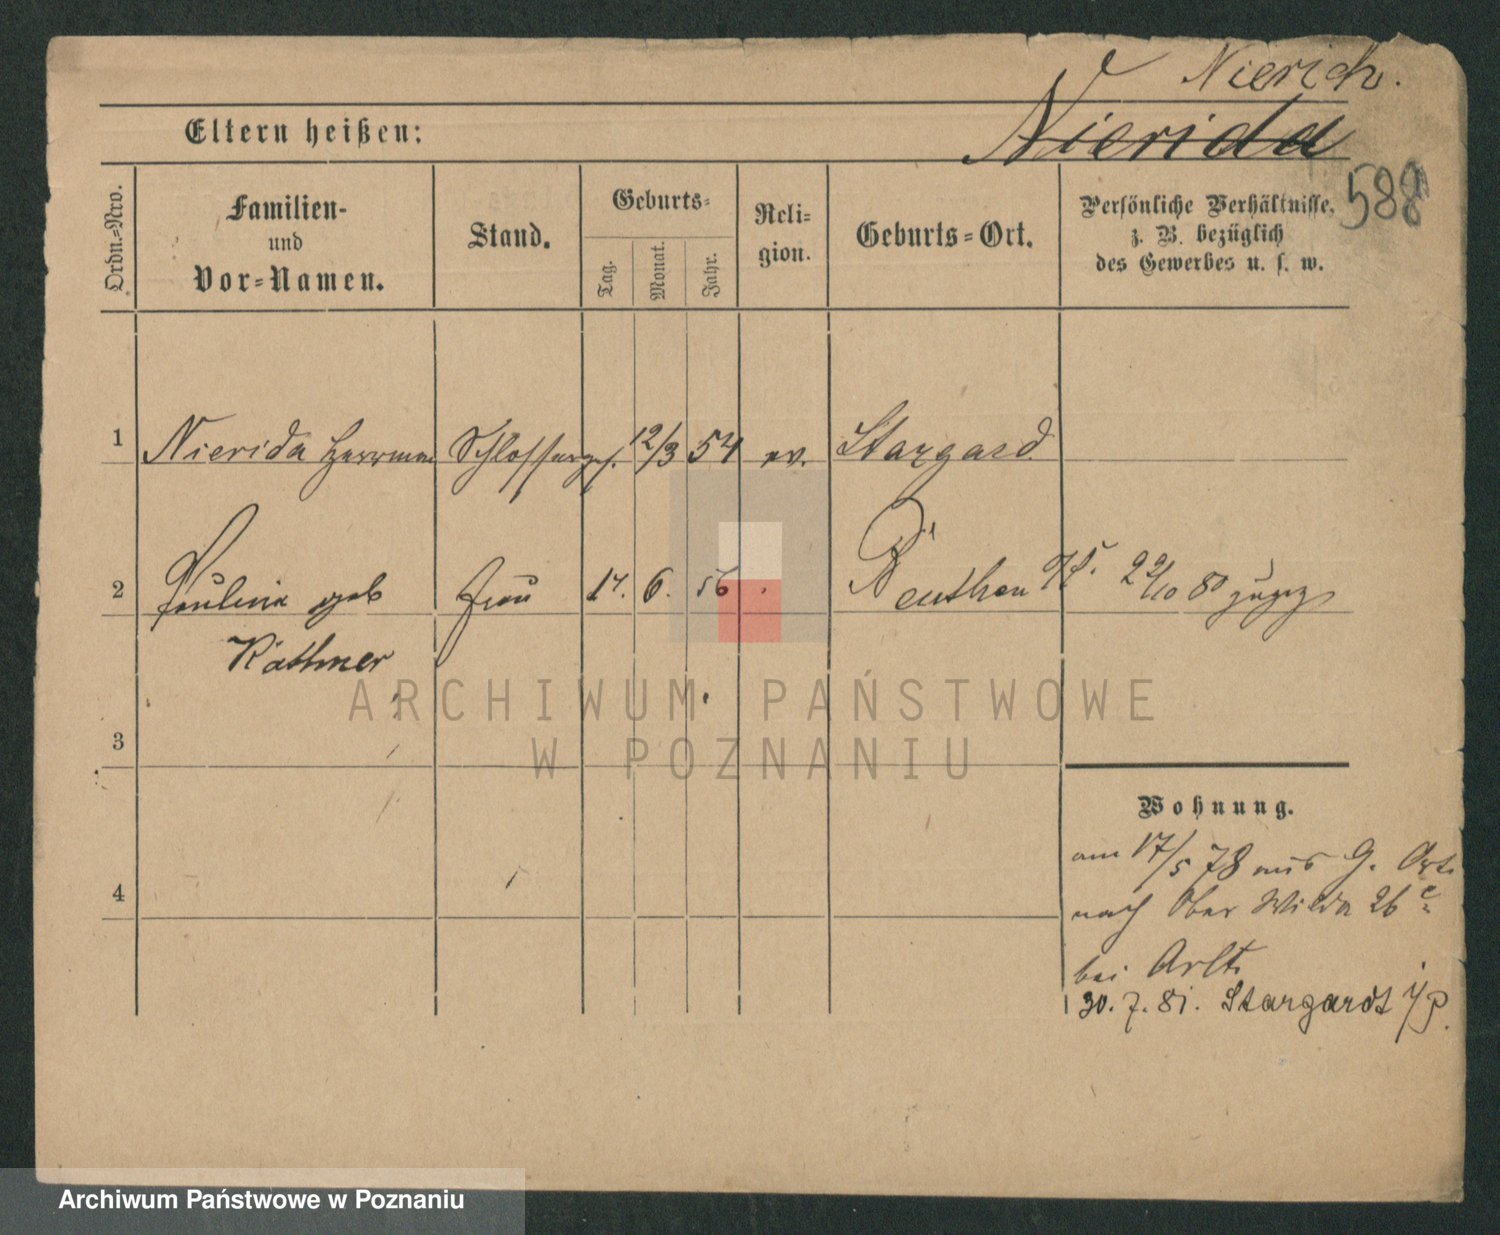 Nierich.
Nierida
Eltern heißen:
588
Ordn.=Nro.
Familien-
und
Vor=Namen.
Stand.
Geburts=
Tag.
Monat.
Jahr.
Reli=
gion.
Geburts=Ort.
Persönliche Verhältnisse,
z. B. bezüglich
des Gewerbes u. s. w.
1 Nierida Herrman Schlosserges. 12/3 54 ev. Stargard
2 Pauline geb Frau 17. 6. 56 Beuthen O/S. 22/10 80 zugez
Käthner
3
Wohnung.
am 17/5 78 aus G.
4
nach Ober Wilda 26
bei Arlt
30. 7. 81. Stargardt i/P.
ARCHIWUM PAŃSTWOWE
W POZNANIU
Archiwum Państwowe w Poznaniu